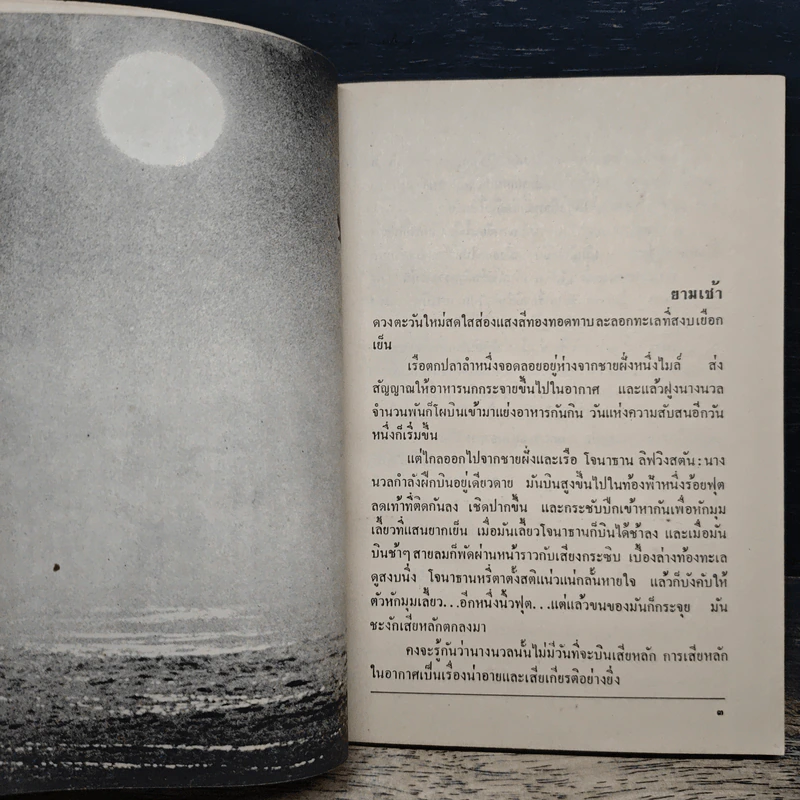 ยามเช้า
ดวงตะวันใหม่สดใสส่องแสงสีทองทอดทาบละลอกทะเลที่สงบเยือก
เย็น
เรือตกปลาลำหนึ่งจอดลอยอยู่ห่างจากชายฝั่งหนึ่งไมล์ ส่ง
สัญญาณให้อาหารนกกระจายขึ้นไปในอากาศ และแล้วฝูงนางนวล
จำนวนพันก็โผบินเข้ามาแย่งอาหารกันกิน วันแห่งความสับสนอีกวัน
หนึ่งก็เริ่มขึ้น
แต่ไกลออกไปจากชายฝั่งและเรือ โจนาธาน ลิฟวิงสตัน : นาง
นวลกำลังฝึกบินอยู่เดียวดาย มันบินสูงขึ้นไปในท้องฟ้าหนึ่งร้อยฟุต
ลดเท้าที่ติดกันลง เชิดปากขึ้น และกระชับปีกเข้าหากันเพื่อหักมุม
เลี้ยวที่แสนยากเย็น เมื่อมันเลี้ยวโจนาธานก็บินได้ช้าลง และเมื่อมัน
บินช้าๆ สายลมก็พัดผ่านหน้าราวกับเสียงกระซิบ เบื้องล่างท้องทะเล
ดูสงบนิ่ง โจนาธานหรี่ตาตั้งสติแน่วแน่กลั้นหายใจ แล้วก็บังคับให้
ตัวหักมุมเลี้ยว...อีกหนึ่งนิ้วฟุต...แต่แล้วขนของมันก็กระจุย มัน
ชะงักเสียหลักตกลงมา
คงจะรู้กันว่านางนวลนั้นไม่มีวันที่จะบินเสียหลัก การเสียหลัก
ในอากาศเป็นเรื่องน่าอายและเสียเกียรติอย่างยิ่ง
๓